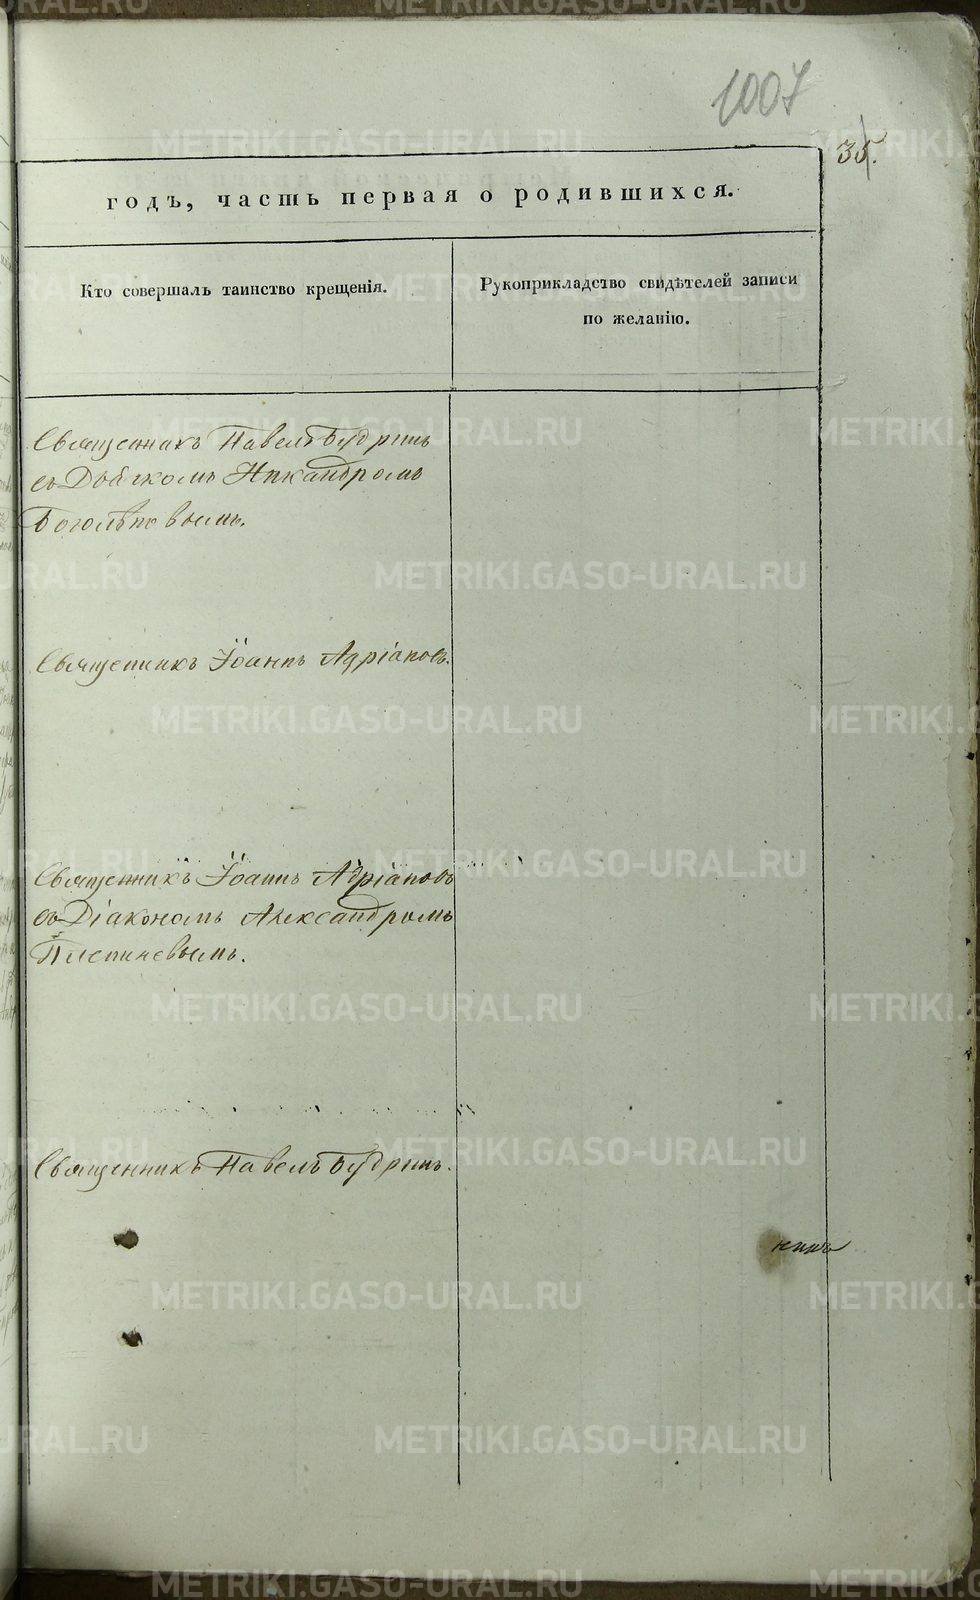 1007
35.
годъ, часть первая о родившихся.
Кто совершалъ таинство крещенія.
Рукоприкладство свидѣтелей записи
по желанію.
Священникъ Павелъ Будринъ
съ Дьячкомъ Никандромъ
Боголѣповымъ.
Священникъ Іоаннъ Адріановъ.
Священникъ Іоаннъ Адріановъ
съ Діакономъ Александромъ
Священникъ Павелъ Будринъ.
METRIKI.GASO-URAL.RU